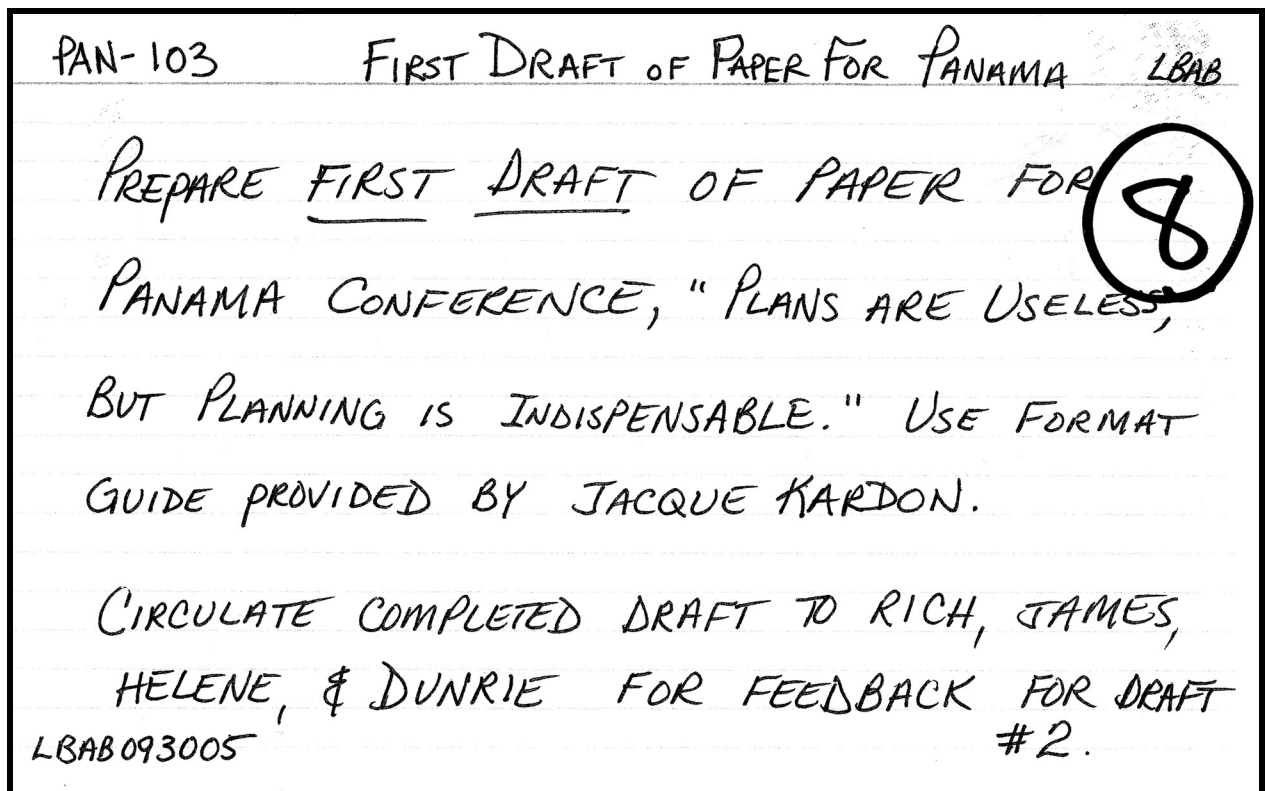 PAN-103 FIRST DRAFT OF PAPER FOR PANAMA LBAB
PREPARE FIRST DRAFT OF PAPER FOR
8
PANAMA CONFERENCE, "PLANS ARE USELESS,
BUT PLANNING IS INDISPENSABLE." USE FORMAT
GUIDE PROVIDED BY JACQUE KARDON.
CIRCULATE COMPLETED DRAFT TO RICH, JAMES,
HELENE, & DUNRIE FOR FEEDBACK FOR DRAFT
#2.
LBAB093005